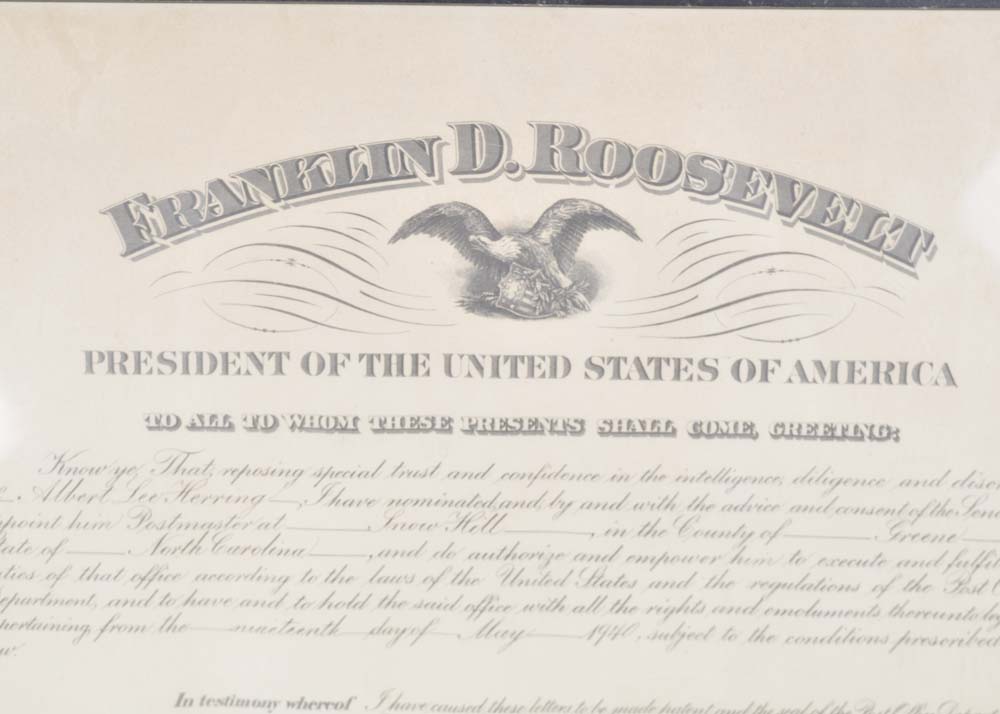 FRANKLIN D. ROOSEVELT
PRESIDENT OF THE UNITED STATES OF AMERICA
TO ALL TO WHOM THESE PRESENTS SHALL COME, GREETING:
Know ye, That, reposing special trust and confidence in the intelligence, diligence and discr
Albert Lee Herring, I have nominated, and, by and with the advice and consent of the Sen
ppoint him Postmaster at Snow Hill, in the County of Greene
tate of North Carolina, and do authorize and empower him to execute and fulfil
ties of that office according to the laws of the United States and the regulations of the Post O
epartment, and to have and to hold the said office with all the rights and emoluments thereunto leg
pertaining, from the nineteenth day of May 1940, subject to the conditions prescribed
w.
In testimony whereof I have caused these letters to be made patent and the seal of the Post Office Depart